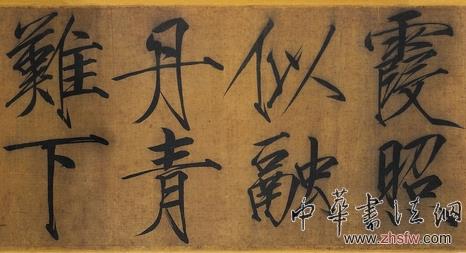 霞照
似融
丹青
難下
中華書法網
www.zhsfw.com